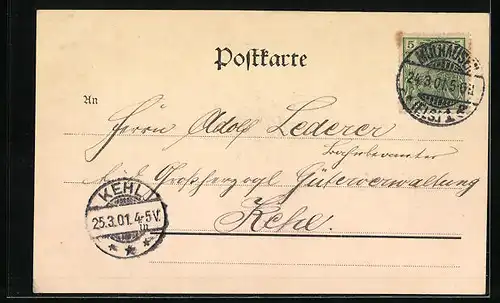 5 5
MÜLHAUSEN
24.3.01. 5-6N.
(ELS.) 1
Postkarte
An
Herrn Adolf Lederer
Bahnbeamter
Großherzogl Güterverwaltung
Kehl.
KEHL
25.3.01. 4-5 V.